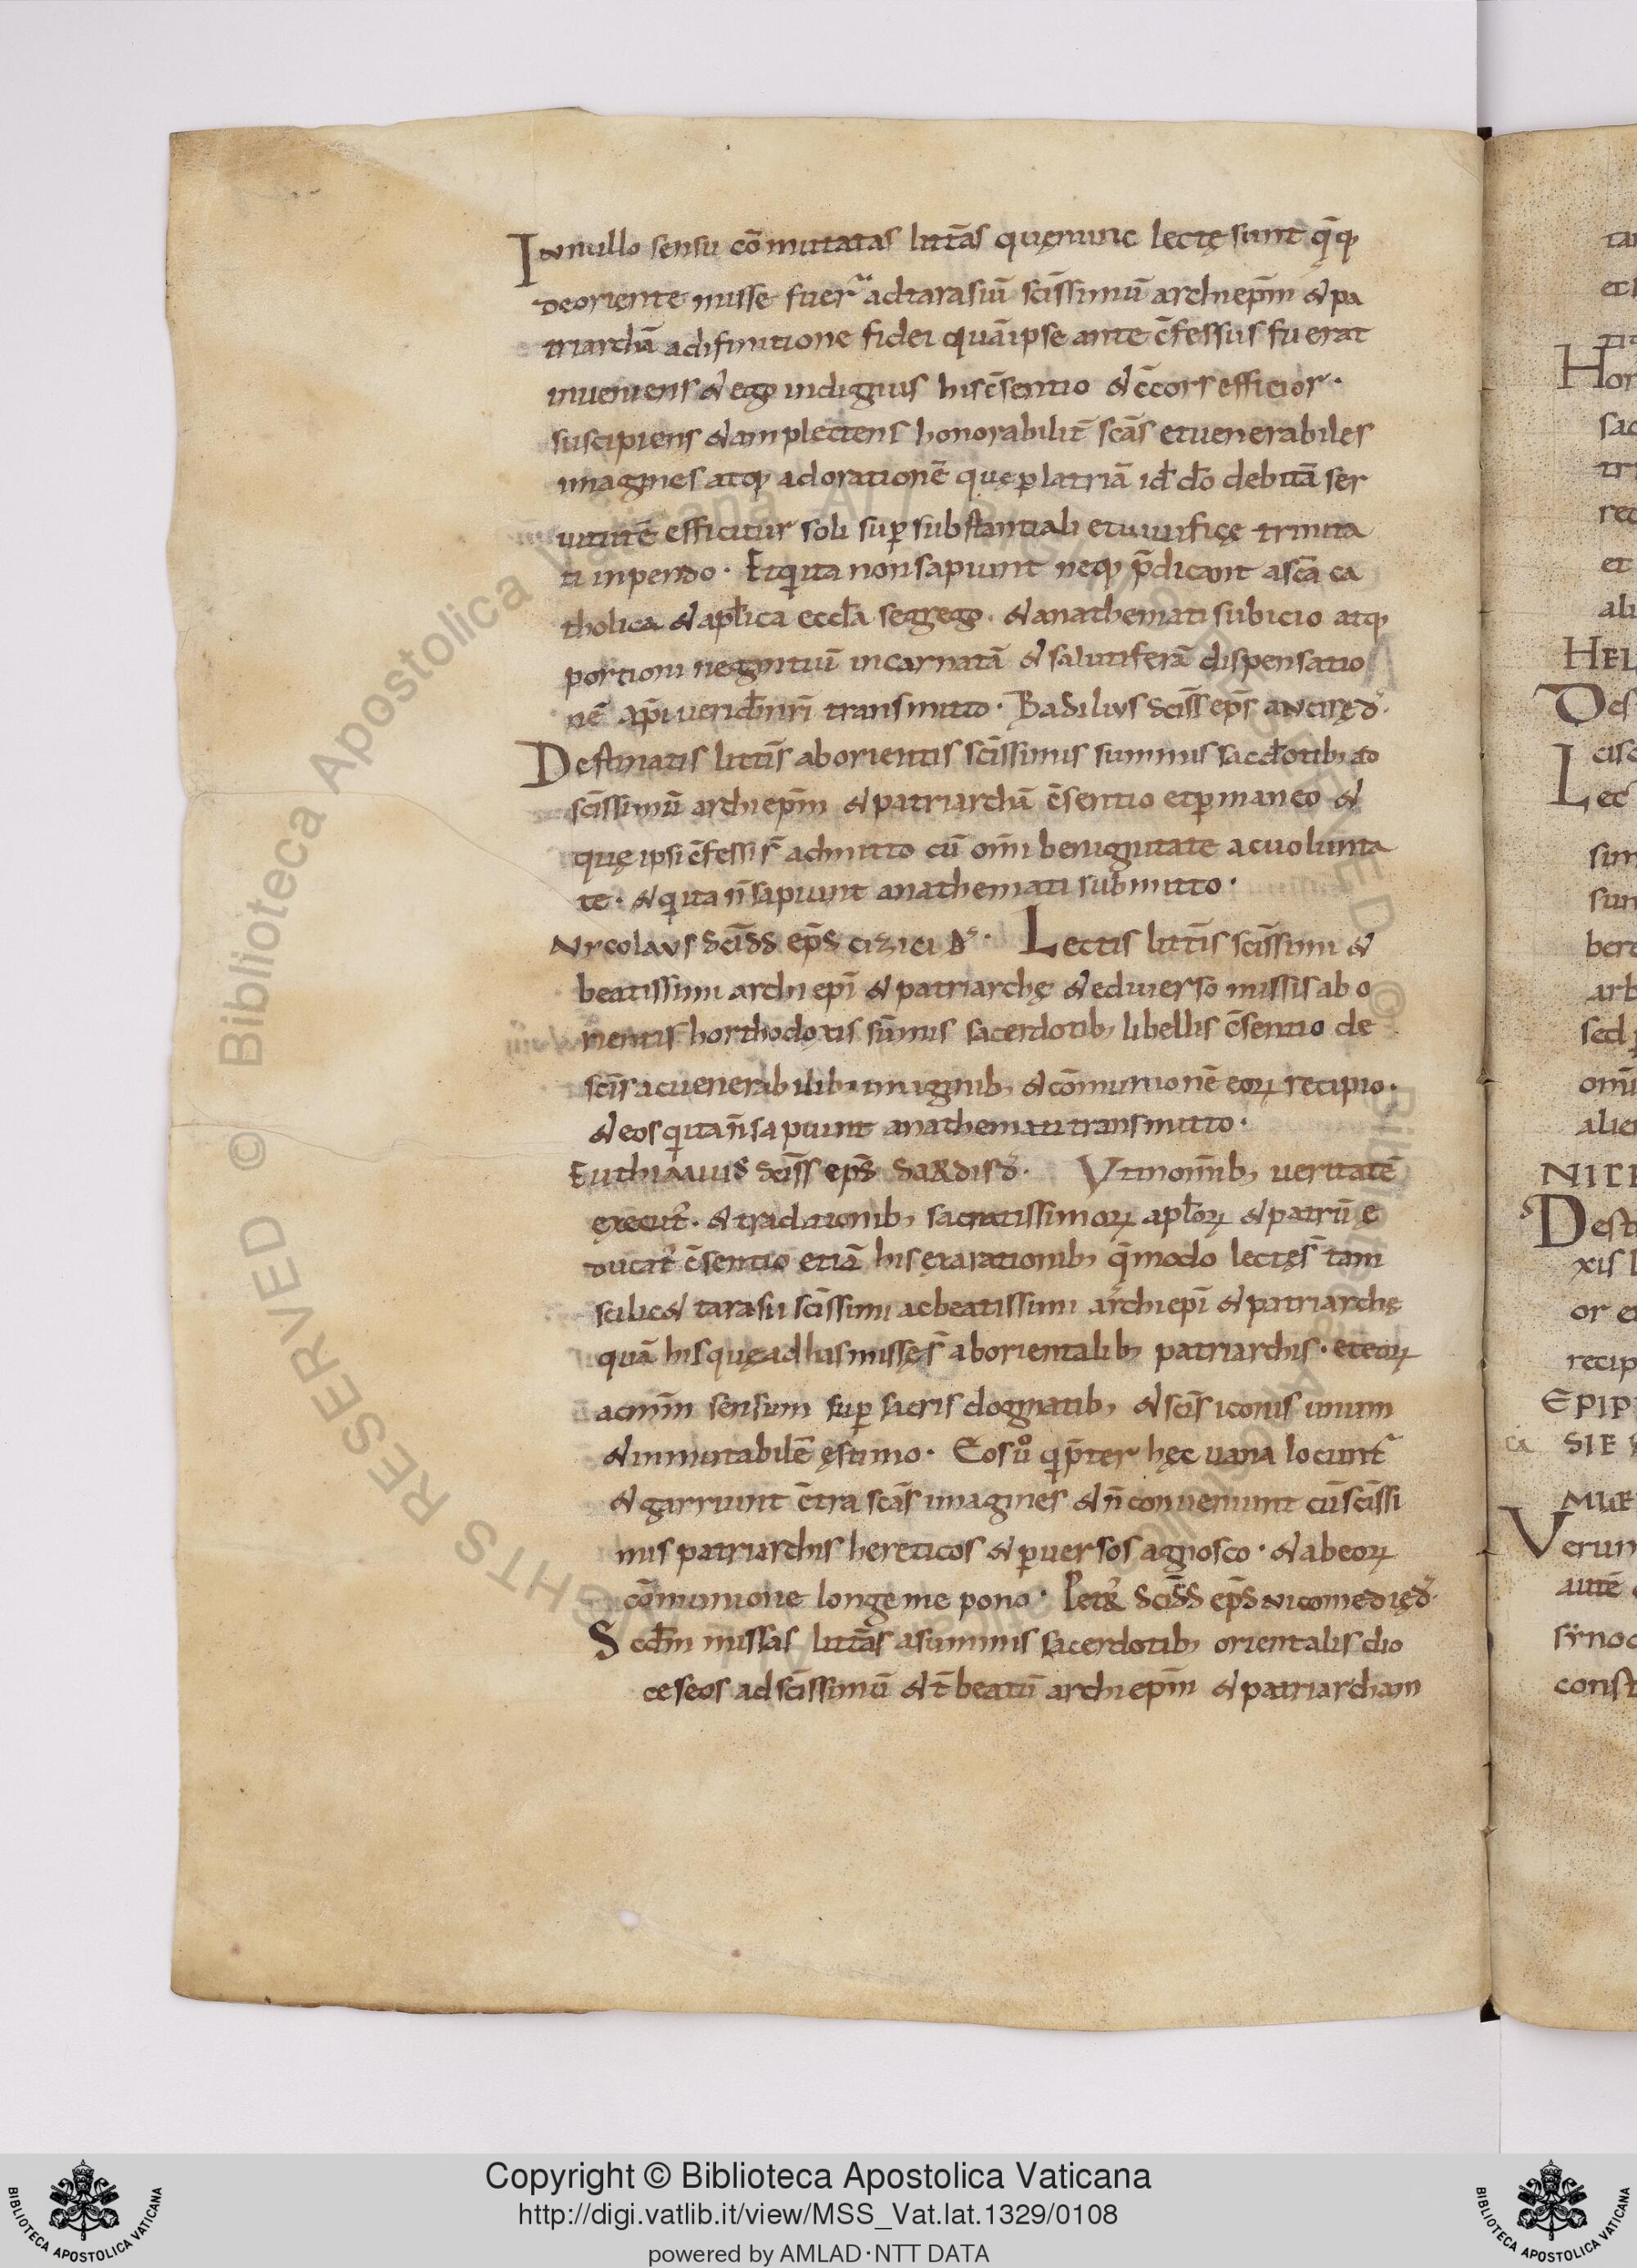 Innullo sensu cōmutatas litt̄as quęnunc lectę sunt q̄q;
deoriente misse fuer̄ adtarasiū sc̄issimū archiep̄m & pa
triarchā adifinitione fidei quāipse ante c̄fessus fuerat
inueniens & ego indignus his c̄sentio & c̄cors efficior·
suscipiens & amplectens honorabilit̄ sc̄as etuenerabiles
imagines atq; adorationē quę ꝑlatriā id̄ d̄o debitā ser
uitutē efficitur soli suꝑsubstantiali etuiuificę trinita
ti inpendo· Etquita nonsapiunt neq; p̄dicant asc̄a ca
tholica & apl̄ica eccl̄a segrego· & anathemati subicio atq;
portioni negantiū incarnatā & salutiferā dispensatio
nē xp̄i
transmitto· Basilius sc̄iss ep̄s ancirę d̄·
Destinatis litt̄is aborientis sc̄issimis summis sacd̄otib; ad
sc̄issimū archiep̄m & patriarchā c̄sentio etꝑmaneo &
quę ipsi c̄fessi s̄ admitto cū om̄i benignitate acuolunta
te· & quita n̄sapiunt anathemati submitto·
Nycolaus sc̄iss ep̄s cizici d̄· Lectis litt̄is sc̄issimi &
beatissimi archiep̄i & patriarchę & ediuerso missis abo
rientis horthodoxis sūmis sacerdotib; libellis c̄sentio de
sc̄is acuenerabilib; imaginib; & cōmunionē eoꝝ recipio·
& eos quitan̄sapiunt anathemati transmitto·
Euthimius sc̄iss ep̄s sardis d̄· Vtinom̄ib; ueritatē
& traditionib; sacratissimoꝝ apl̄oꝝ & patrū e
c̄sentio etiā his exarationib; q̄modo lectę s̄ tam
scilic& tarasii sc̄issimi acbeatissimi archiep̄i & patriarchę
quā his quęadhas missę s̄ aborientalib; patriarchis· eteoꝝ
sensum suꝑ sacris dogmatib; & sc̄is iconis unum
& inmutabilē ęstimo· Eos ů qip̄ter hęc uana locunt̄
& garriunt c̄tra sc̄as imagines & n̄conueniunt cūsc̄issi
mis patriarchis hereticos & ꝑuersos agnosco· & abeoꝝ
cōmunione longe me pono· Petr; sc̄iss ep̄s nicomedię d̄·
Scd̄m missas litt̄as asummis sacerdotib; orientalis dio
ceseos ad sc̄issimū & t̄ beatū archiep̄m & patriarcham
Copyright © Biblioteca Apostolica Vaticana
http://digi.vatlib.it/view/MSS_Vat.lat.1329/0108
powered by AMLAD·NTT DATA